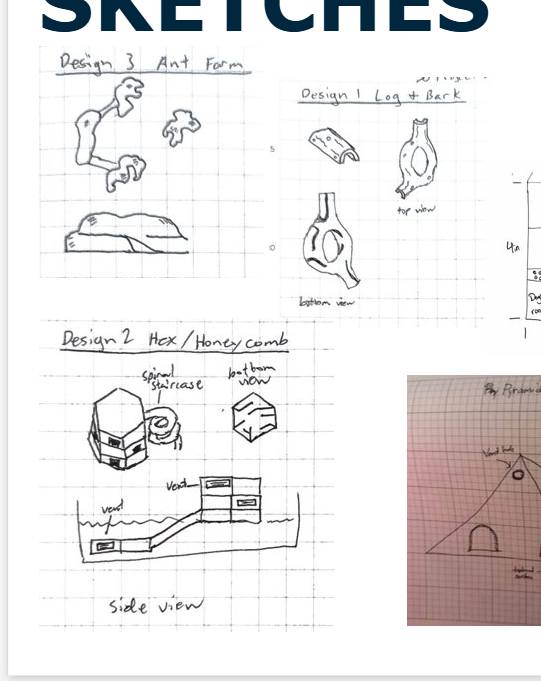 SKETCHES
Design 3 Ant Farm
Design 1 Log + Bark
top view
bottom view
Design 2 Hex/Honeycomb
spiral staircase
bottom view
vent
vent
side view
4in
5
0
Vent hole